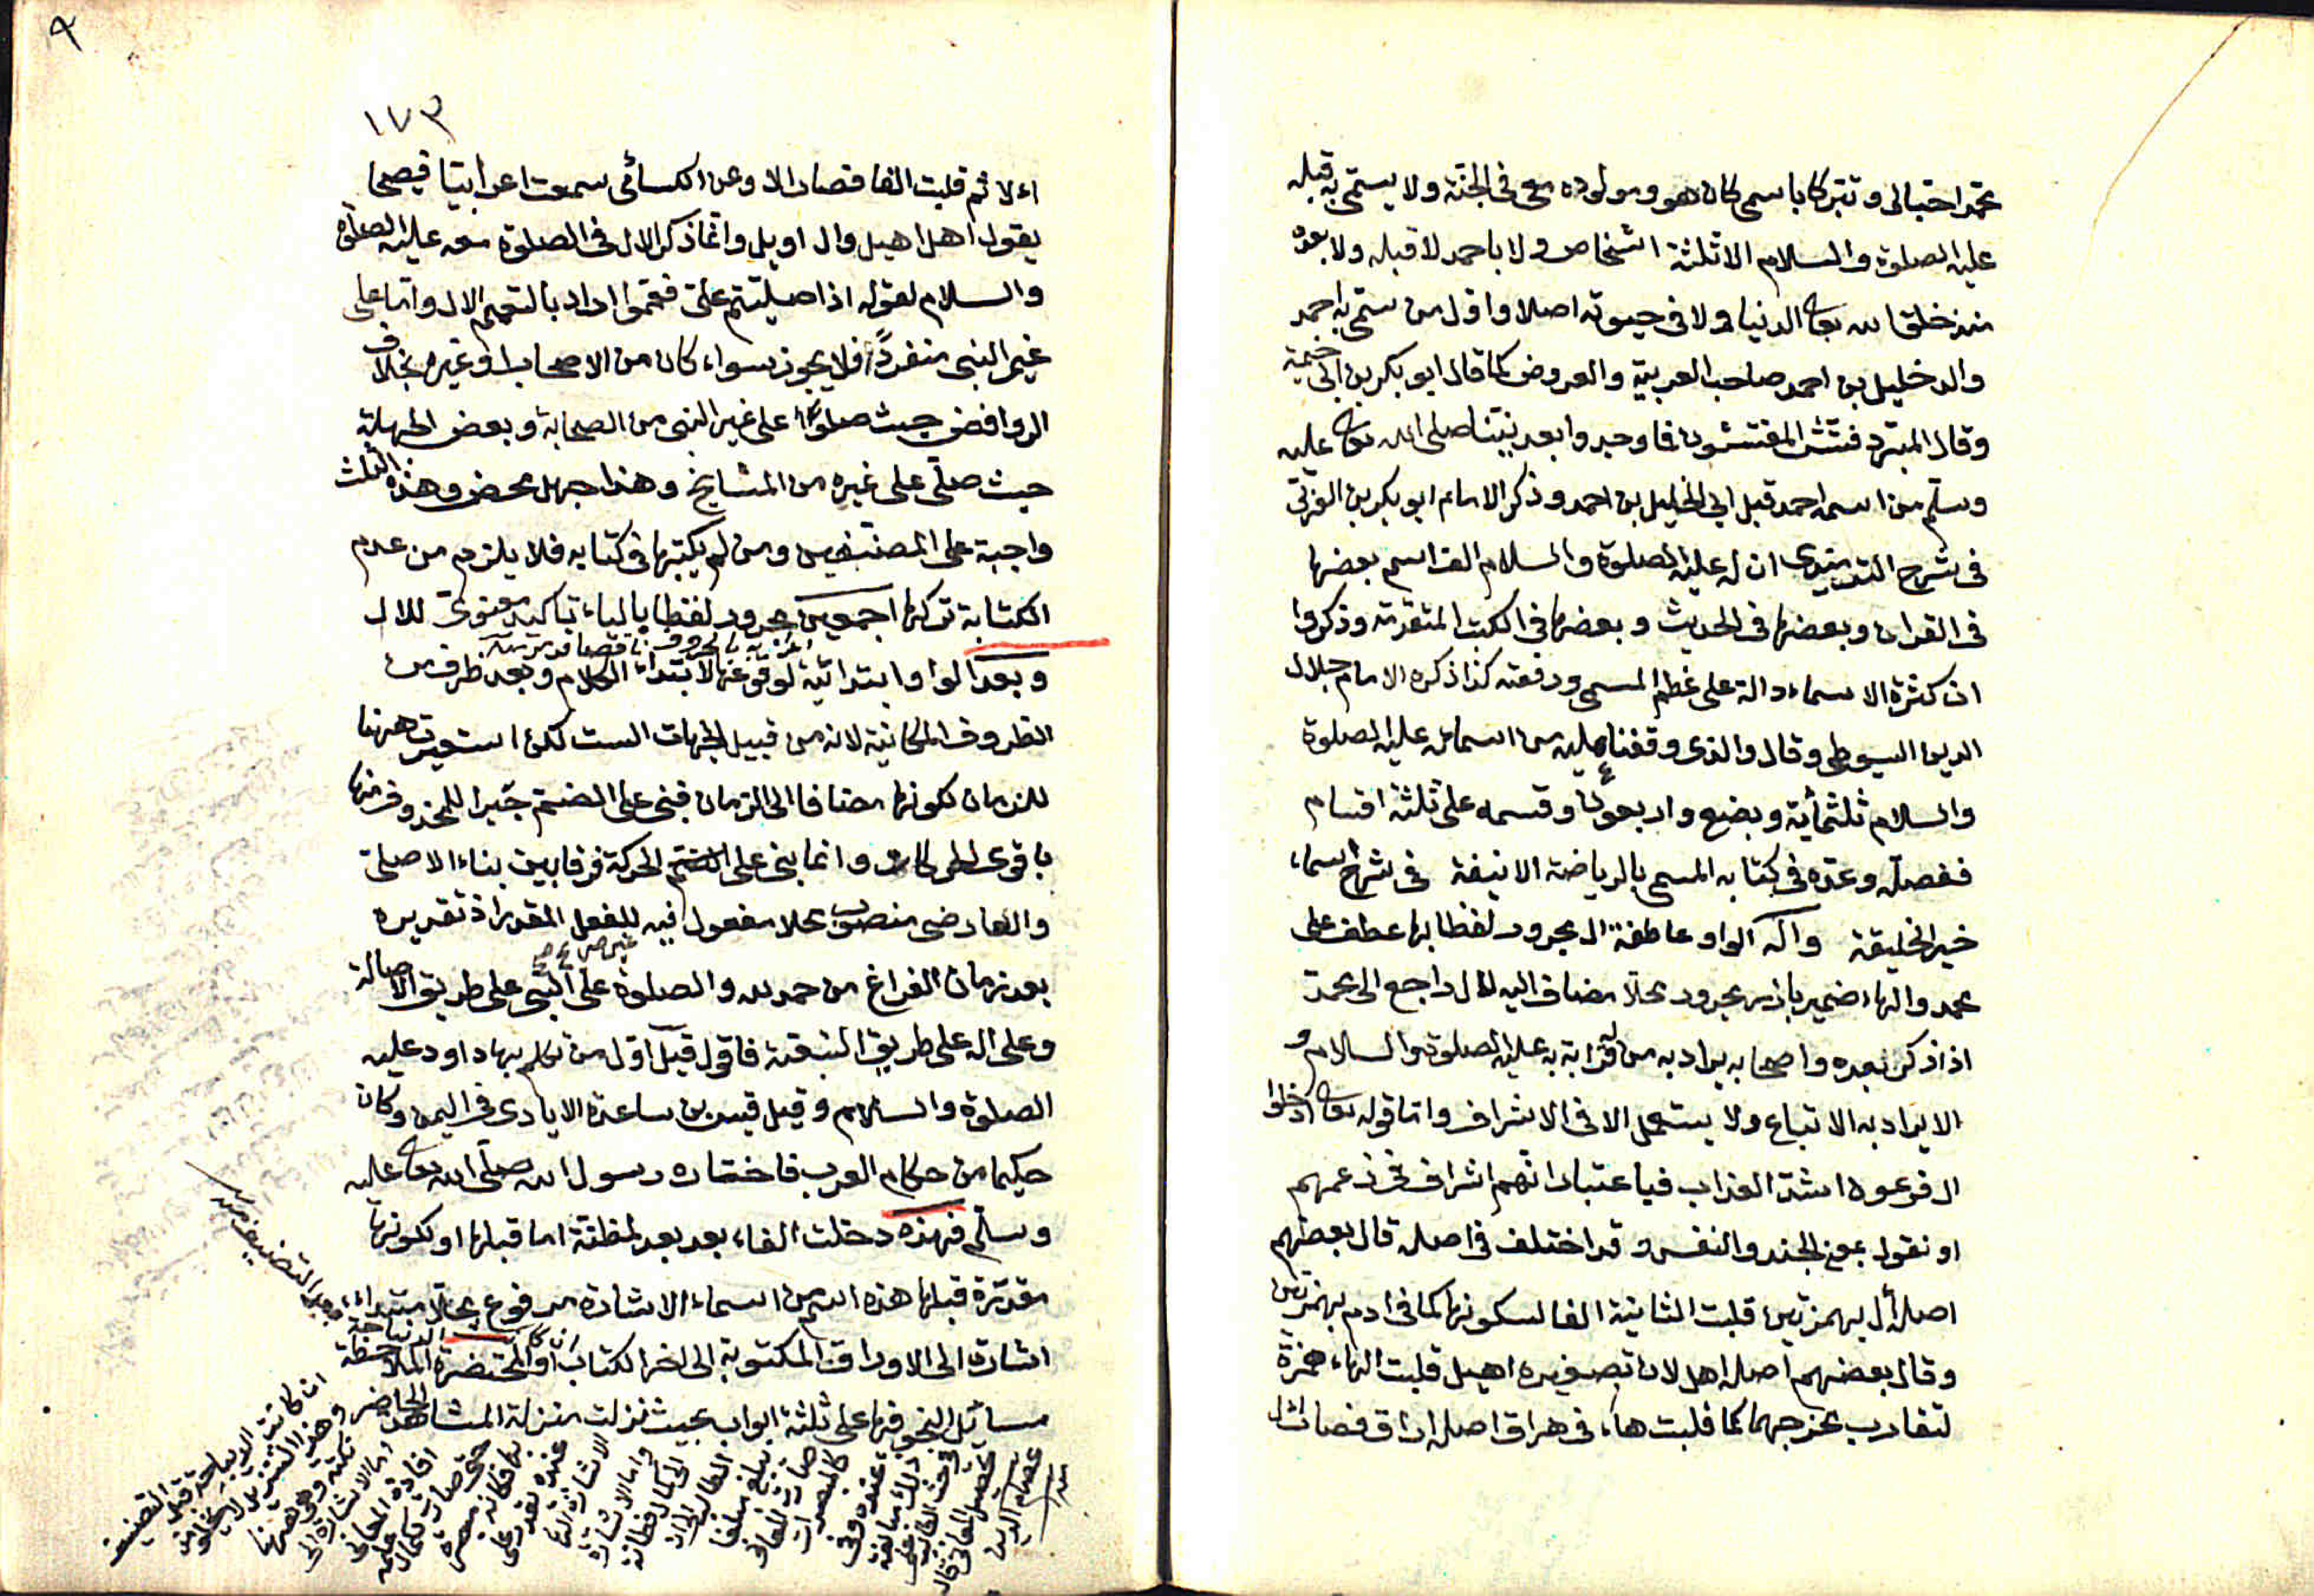 محمدا حبا لى وتبركا باسمى كان هو ومولوده معى فى الجنة ولا يستمى به قبله
عليه الصلوة والسلام الا ثلثة اشخاص ولا باحمد لا قبله ولا بعده
منذ خلق الله تعالى الدنيا ولا فى حيوته اصلا واول من ستمى به احمد
والد خليل بن احمد صاحب العربية والعروض كما قال ابو بكر بن ابى خيثمة
وقال المبرد فتش المفتشون فما وجدوا بعد نبينا صلى الله تعالى عليه
وسلم من اسمه احمد قبل ابى الخليل بن احمد وذكر الامام ابو بكر بن العربى
فى شرح الترمذى ان له عليه الصلوة والسلام الف اسم بعضها
فى القران وبعضها فى الحديث وبعضها فى الكتب المتقدمة وذكروا
ان كثرة الاسماء دالة على عظم المسمى ورفعته كذا ذكره الامام جلال
الدين السيوطى وقال والذى وقفنا عليه من اسمائه عليه الصلوة
والسلام ثلثمأية وبضع واربعون وقسمه على ثلثة اقسام
ففصله وعده فى كتابه المسمى بالرياضة الانيفة فى شرح اسماء
خير الخليقة وآله الواو عاطفة ال مجرور لفظا بها عطف على
محمد والهاء ضمير بارز مجرور محلا مضاف اليه للال راجع الى محمد
اذا ذكر بعده واصحابه يراد به من قرابة به عليه الصلوة والسلام و
الا يراد به الاتباع ولا يستعمل الا فى الاشراف واما قوله تعالى ادخلوا
ال فرعون اشد العذاب فباعتبار انهم اشراف فى زعمهم
او نقول بمعنى الجند والنفس وقد اختلف فى اصله قال بعضهم
اصله أأل بهمزتين قلبت الثانية الفا لسكونها كما فى ادم بهمزتين
وقال بعضهم اصله اهل لان تصغيره اهيل قلبت الهاء همزة
لتقارب مخرجهما كما قلبت هاء فى هراق اصله اراق فصار أال
٩
١٧٣
اء لا ثم قلبت الفا فصار الا وعن الكسائى سمعت اعرابيا فصيحا
يقول اهل اهيل وال اويل وانما ذكر الال فى الصلوة معه عليه الصلوة
والسلام لقوله اذا صليتم على فعمموا اراد بالتعميم الال واما على
غير النبى منفردا فلا يجوز سواء كان من الاصحاب او غيره بخلاف
الروافض حيث صلوا على غير النبى من الصحابة وبعض الجهلة
حيث صلى على غيره من المشايخ وهذا جهل محض وهذه الثلث
واجبة على المصنفين ومن لم يكتبها فى كتابه فلا يلزم من عدم
الكتابة تركها اجمعين مجرور لفظا بالياء تأكيد معنوى للال
وبعد الواو ابتدائية لوقوعها لابتداء الكلام وبعد ظرف من
الظروف المكانية لانه من قبيل الجهات الست لكن استعيرت ههنا
للزمان لكونها مضافا الى الزمان فبنى على الضم جبرا للمحذوف منها
باقوى الحركات وانما بنى على الحركة فرقا بين بناء الاصلى
والعارضى منصوب محلا مفعول فيه للفعل المقدر اذ تقديره
بعد زمان الفراغ من حمد لله والصلوة على النبى على طريق الاصالة
وعلى اله على طريق التبعية فاقول قيل اول من تكلم بها داود عليه
الصلوة والسلام وقيل قيس بن ساعدة الايادى فى اليمن وكان
حكيما من حكام العرب فاختاره رسول الله صلى الله تعالى عليه
وسلم فهذه دخلت الفاء بعد بعد لمظنة اما قبلها او لكونها
مقدرة قبلها هذه اسم من اسماء الاشارة مرفوع محلا مبتداء
اشارة الى الاوراق المكتوبة الى اخر الكتاب او المحتضرة الملاحظة
مسائل النحو فها على ثلثة ابواب بحيث نزلت منزلة المشاهد
الحاضر
عصام الدين